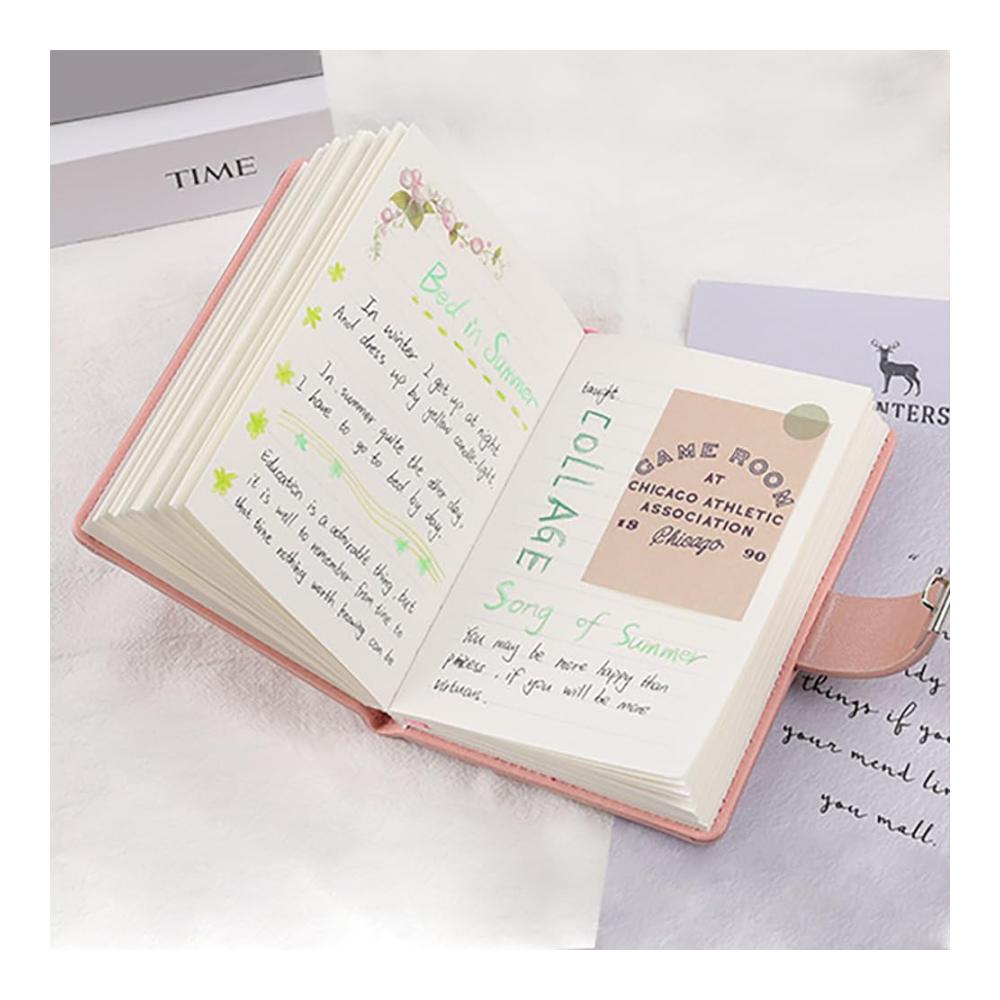 TIME
Bed in Summer
In winter I get up at night
And dress up by yellow candle-light
In summer quite the other day,
I have to go to bed by day.
Education is a admirable thing, but
it is well to remember from time to
that time nothing worth knowing can be
taught.
COllAGE
GAME ROOM
AT
CHICAGO ATHLETIC
ASSOCIATION
18 Chicago 90
Song of Summer
You may be more happy than
princess, if you will be more
virtuous.
NTERS
things if you
your mend
you mall.